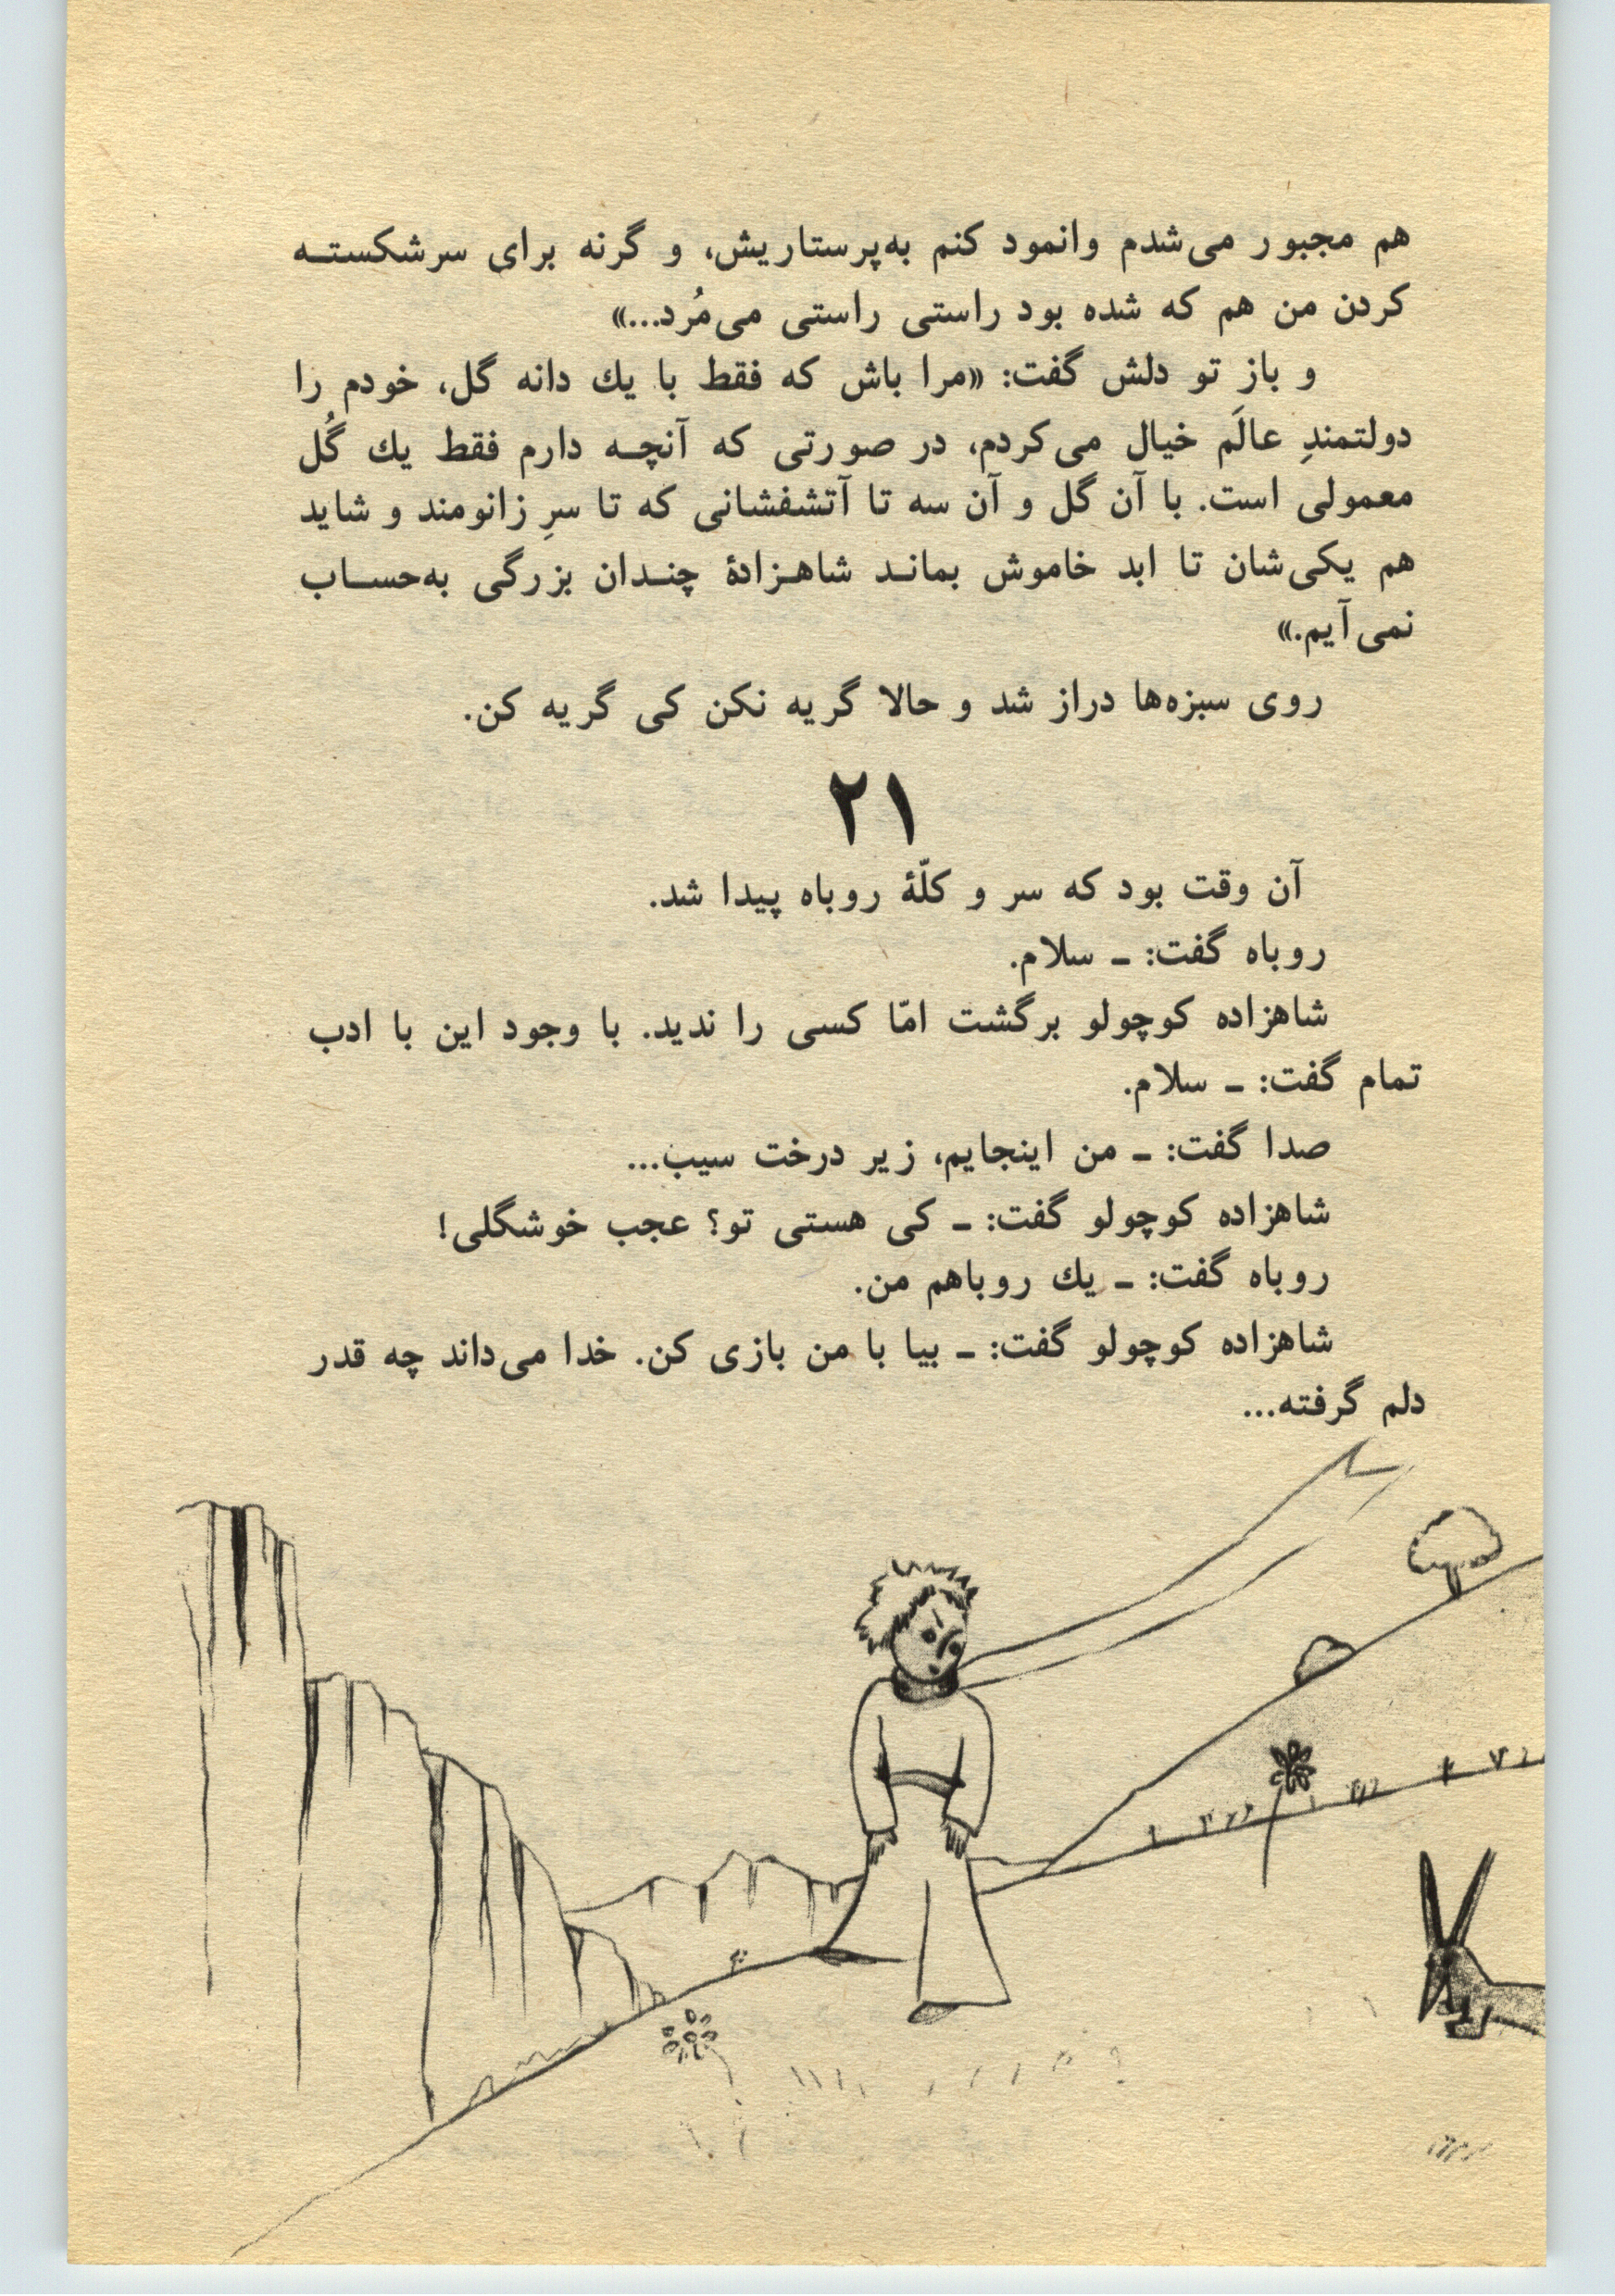 هم مجبور می‌شدم وانمود کنم به‌پرستاریش، و گرنه برای سرشکستـه
کردن من هم که شده بود راستی راستی می‌مُرد...»
و باز تو دلش گفت: «مرا باش که فقط با يك دانه گل، خودم را
دولتمندِ عالَم خیال می‌کردم، در صورتی که آنچـه دارم فقط يك گُل
معمولی است. با آن گل و آن سه تا آتشفشانی که تا سرِ زانومند و شاید
هم یکی‌شان تا ابد خاموش بمانـد شاهـزادهٔ چنـدان بزرگی به‌حسـاب
نمی‌آیم.»
روی سبزه‌ها دراز شد و حالا گریه نکن کی گریه کن.
۲۱
آن وقت بود که سر و کلّهٔ روباه پیدا شد.
روباه گفت: ـ سلام.
شاهزاده کوچولو برگشت امّا کسی را ندید. با وجود این با ادب
تمام گفت: ـ سلام.
صدا گفت: ـ من اینجایم، زیر درخت سیب...
شاهزاده کوچولو گفت: ـ کی هستی تو؟ عجب خوشگلی!
روباه گفت: ـ يك روباهم من.
شاهزاده کوچولو گفت: ـ بیا با من بازی کن. خدا می‌داند چه قدر
دلم گرفته...